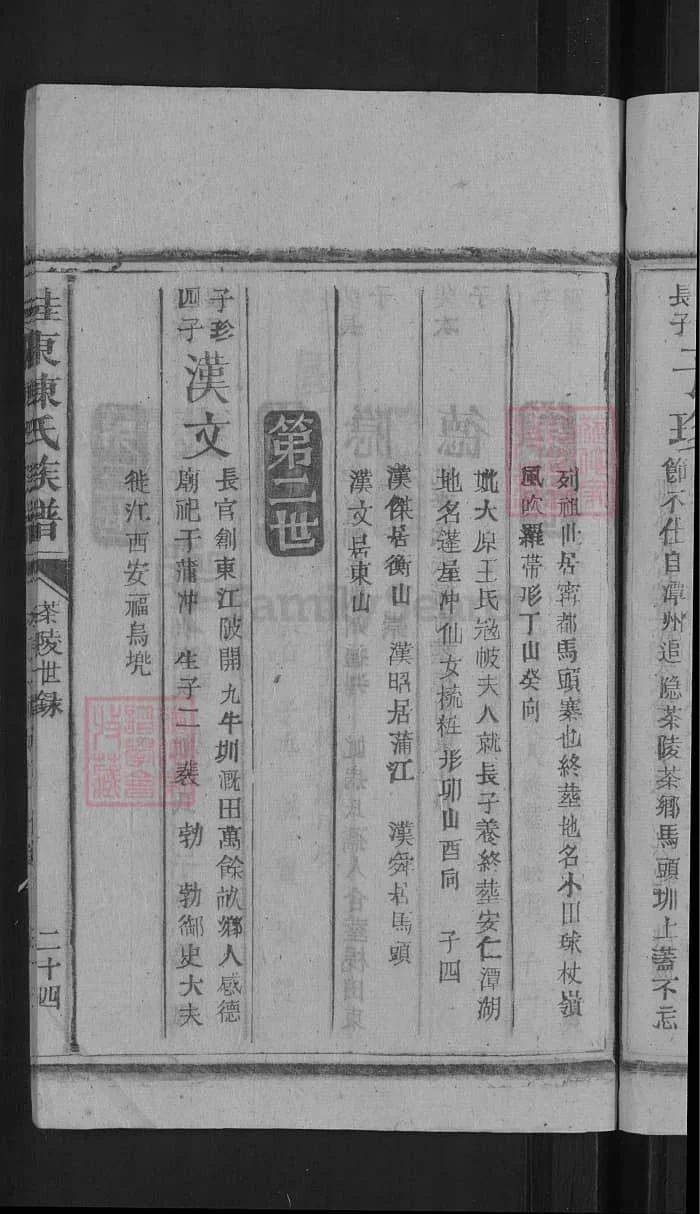 長子
子珍
飾不仕自潭州追隐茶陵茶鄉馬頭圳上蓋不忘
列祖世居寗都馬頭寨也終塟地名小田球杖嶺
風吹羅帶形丁山癸向
妣大原王氏𢓜帔夫人就長子養終塟安仁潭湖
地名蓬屋冲仙女梳粧形卯山酉向 子四
漢傑居衡山 漢昭居蒲江 漢舜居馬頭
漢文居東山
第二世
子珍
四子
漢文
長官創東江陂開九牛圳溉田萬餘畝鄉人感德
廟祀于蒲冲 生子二 裴 勃 勃御史大夫
徙江西安福烏兠
桂東陳氏族譜
茶陵世録
二十四